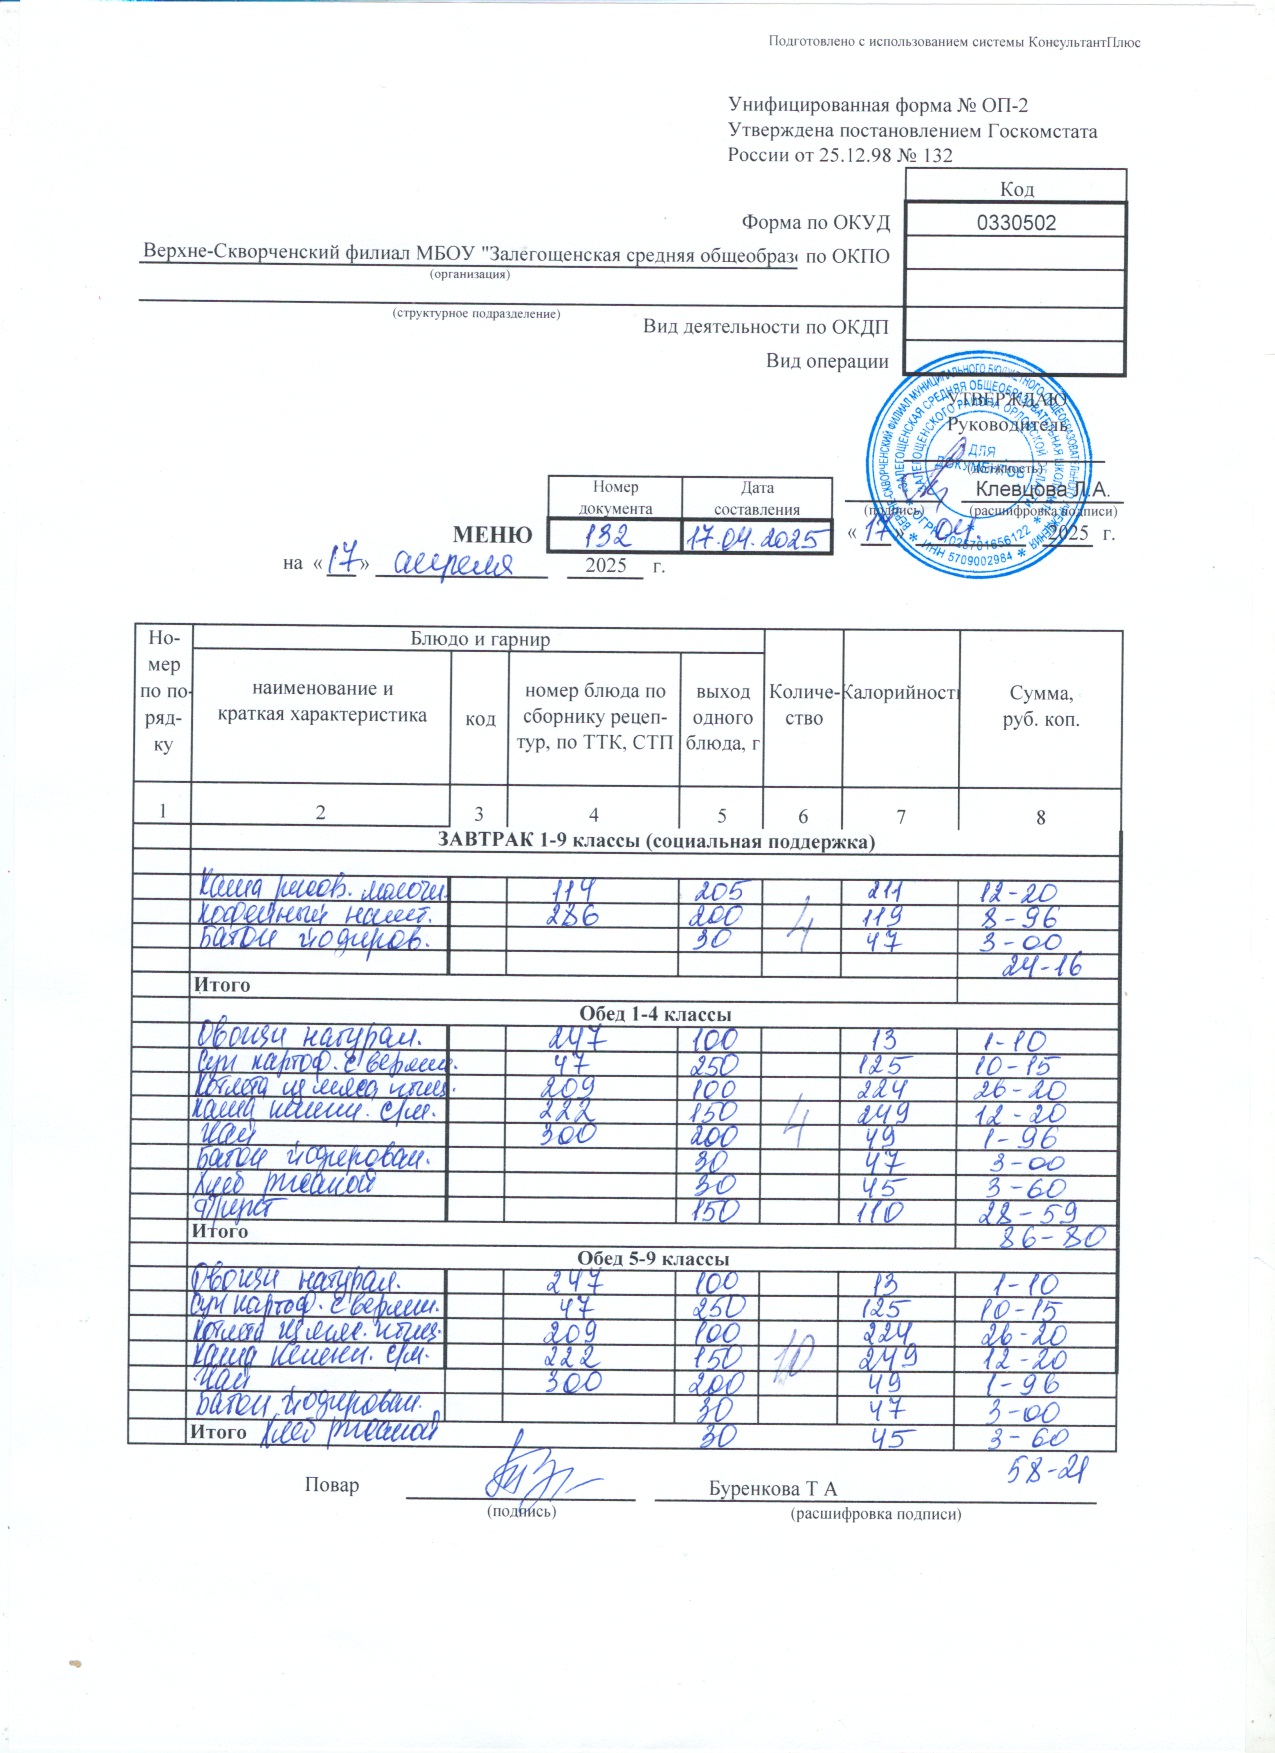 Подготовлено с использованием системы КонсультантПлюс
Унифицированная форма № ОП-2
Утверждена постановлением Госкомстата
России от 25.12.98 № 132
Код
Форма по ОКУД 0330502
Верхне-Скворченский филиал МБОУ "Залегощенская средняя общеобразо по ОКПО
(организация)
(структурное подразделение)
Вид деятельности по ОКДП
Вид операции
УТВЕРЖДАЮ
Руководитель
(должность)
Клевцова Л.А.
(подпись) (расшифровка подписи)
ДЛЯ ДОКУМЕНТОВ
ИНН 5709002984
Номер документа Дата составления
МЕНЮ 132 17.04.2025 « 17 » 04. 2025 г.
на « 17 » апреля 2025 г.
Но-мер по по-ряд-ку Блюдо и гарнир Количе-ство Калорийность Сумма, руб. коп.
наименование и краткая характеристика код номер блюда по сборнику рецеп-тур, по ТТК, СТП выход одного блюда, г
1 2 3 4 5 6 7 8
ЗАВТРАК 1-9 классы (социальная поддержка)
Каша рисов. молочн. 114 205 211 12-20
Кофейный напит. 286 200 4 119 8-96
Батон йодиров. 30 47 3-00
24-16
Итого
Обед 1-4 классы
Овощи натурал. 247 100 13 1-10
Суп картоф. с вермиш. 47 250 125 10-15
Котлета из мяса птиц. 209 100 224 26-20
Каша пшенн. с/м. 222 150 4 249 12-20
Чай 300 200 49 1-96
Батон йодирован. 30 47 3-00
Хлеб ржаной 30 45 3-60
Фрукт 150 110 28-59
Итого 86-80
Обед 5-9 классы
Овощи натурал. 247 100 13 1-10
Суп картоф. с вермиш. 47 250 125 10-15
Котлета из мяс. птиц. 209 100 224 26-20
Каша пшенн. с/м. 222 150 10 249 12-20
Чай 300 200 49 1-96
Батон йодирован. 30 47 3-00
Итого Хлеб ржаной 30 45 3-60
58-21
Повар Буренкова Т А
(подпись) (расшифровка подписи)